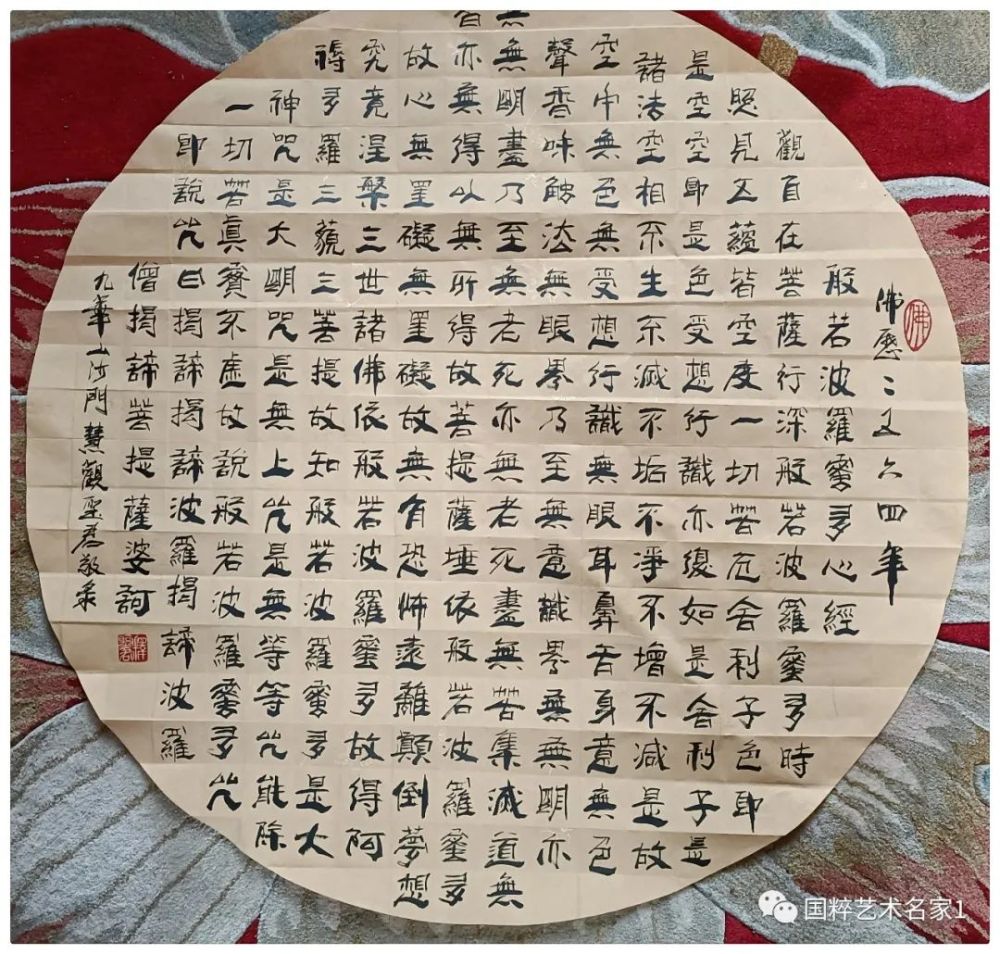 佛
佛歷二五六四年
般若波羅蜜多心經
觀自在菩薩行深般若波羅蜜多時
照見五蘊皆空度一切苦厄舍利子色即
是空空即是色受想行識亦復如是舍利子是
諸法空相不生不滅不垢不淨不增不減是故
空中無色無受想行識無眼耳鼻舌身意無色
聲香味觸法無眼界乃至無意識界無無明亦
無無明盡乃至無老死亦無老死盡無苦集滅道無
亦無得以無所得故菩提薩埵依般若波羅蜜多
故心無罣礙無罣礙故無有恐怖遠離顛倒夢想
究竟涅槃三世諸佛依般若波羅蜜多故得阿
耨多羅三藐三菩提故知般若波羅蜜多是大
神咒是大明咒是無上咒是無等等咒能除
一切苦真實不虛故說般若波羅蜜多咒
即說咒曰揭諦揭諦波羅揭諦波羅
僧揭諦菩提薩婆訶
九華山沙門慧觀聖君敬录
国粹艺术名家1